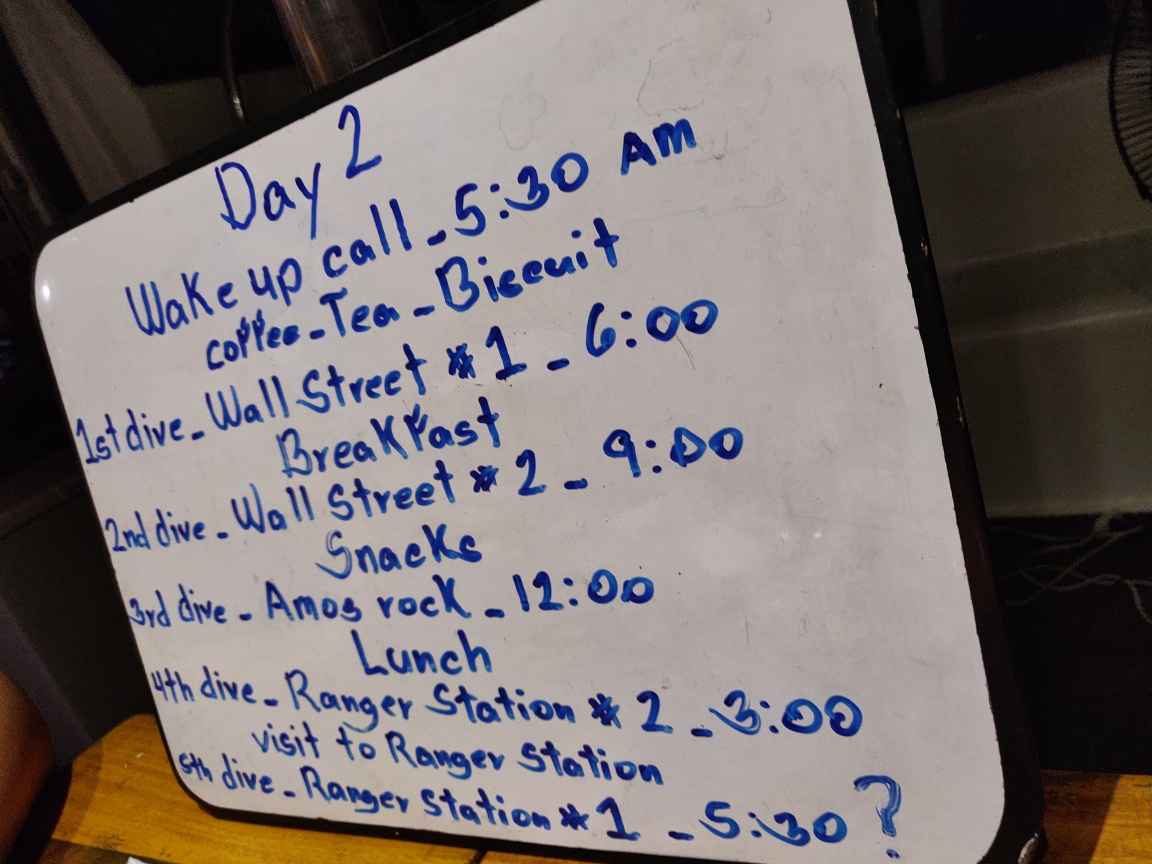 Day 2
Wake up call - 5:30 AM
coffee - Tea - Biscuit
1st dive - Wall Street #1 - 6:00
Breakfast
2nd dive - Wall Street #2 - 9:00
Snacks
3rd dive - Amos rock - 12:00
Lunch
4th dive - Ranger Station #2 - 3:00
visit to Ranger Station
5th dive - Ranger Station #1 - 5:30 ?